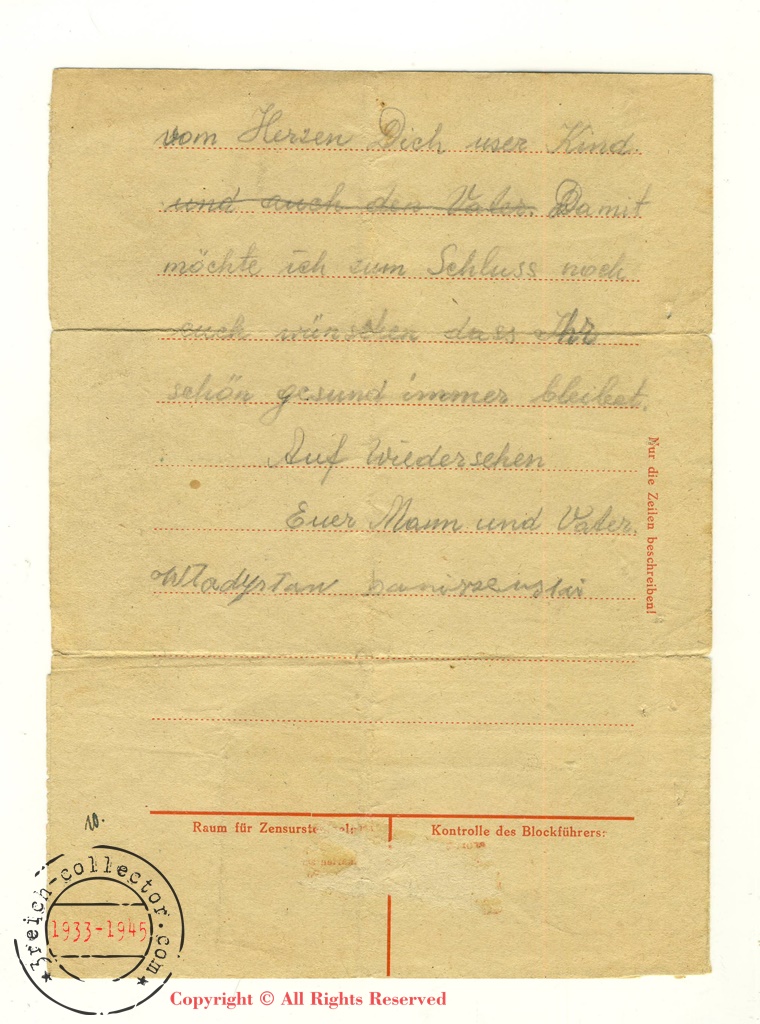 vom Herzen Dich user Kind.
und auch den Vater. Damit
möchte ich zum Schluss noch
euch wünschen dass Ihr
schön gesund immer bleibet.
Auf Wiedersehen
Euer Mann und Vater.
Władysław
Nur die Zeilen beschreiben!
10.
Raum für Zensurste
Kontrolle des Blockführers:
3reich-collector.com
1933-1945
Copyright © All Rights Reserved